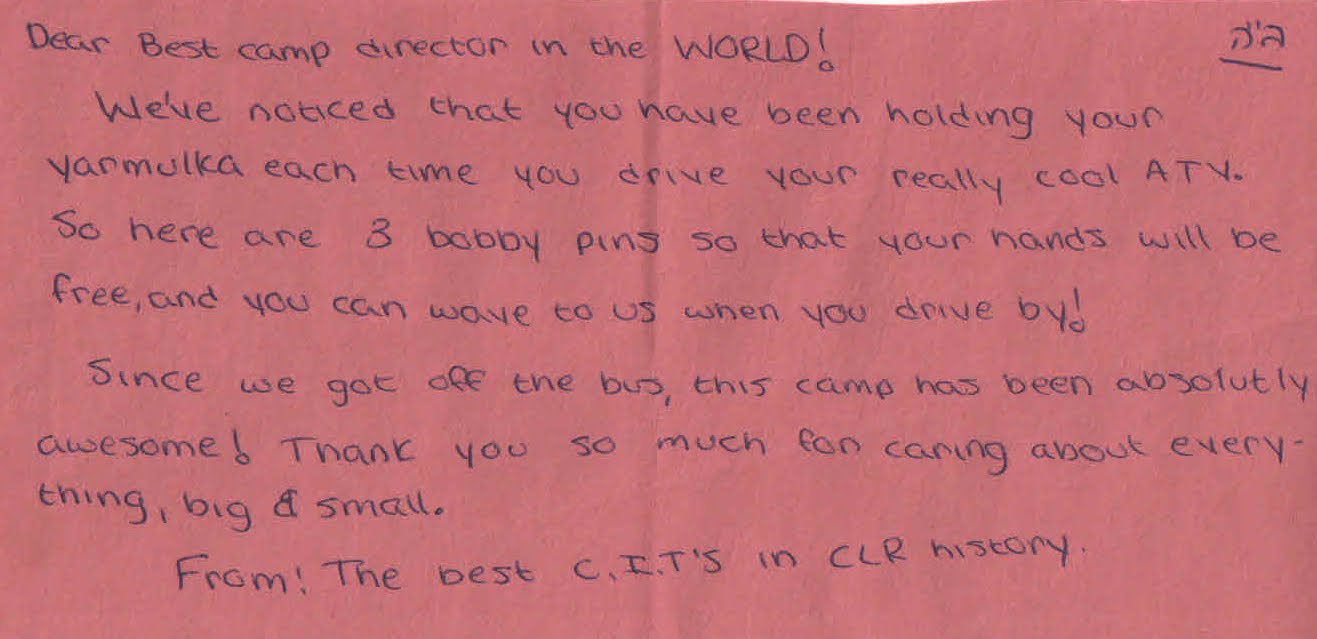 ב"ה
Dear Best camp director in the WORLD!
We've noticed that you have been holding your
yarmulka each time you drive your really cool ATV.
So here are 3 bobby pins so that your hands will be
free, and you can wave to us when you drive by!
Since we got off the bus, this camp has been absolutly
awesome! Thank you so much for caring about every-
thing, big & small.
From: The best C.I.T's in CLR history.